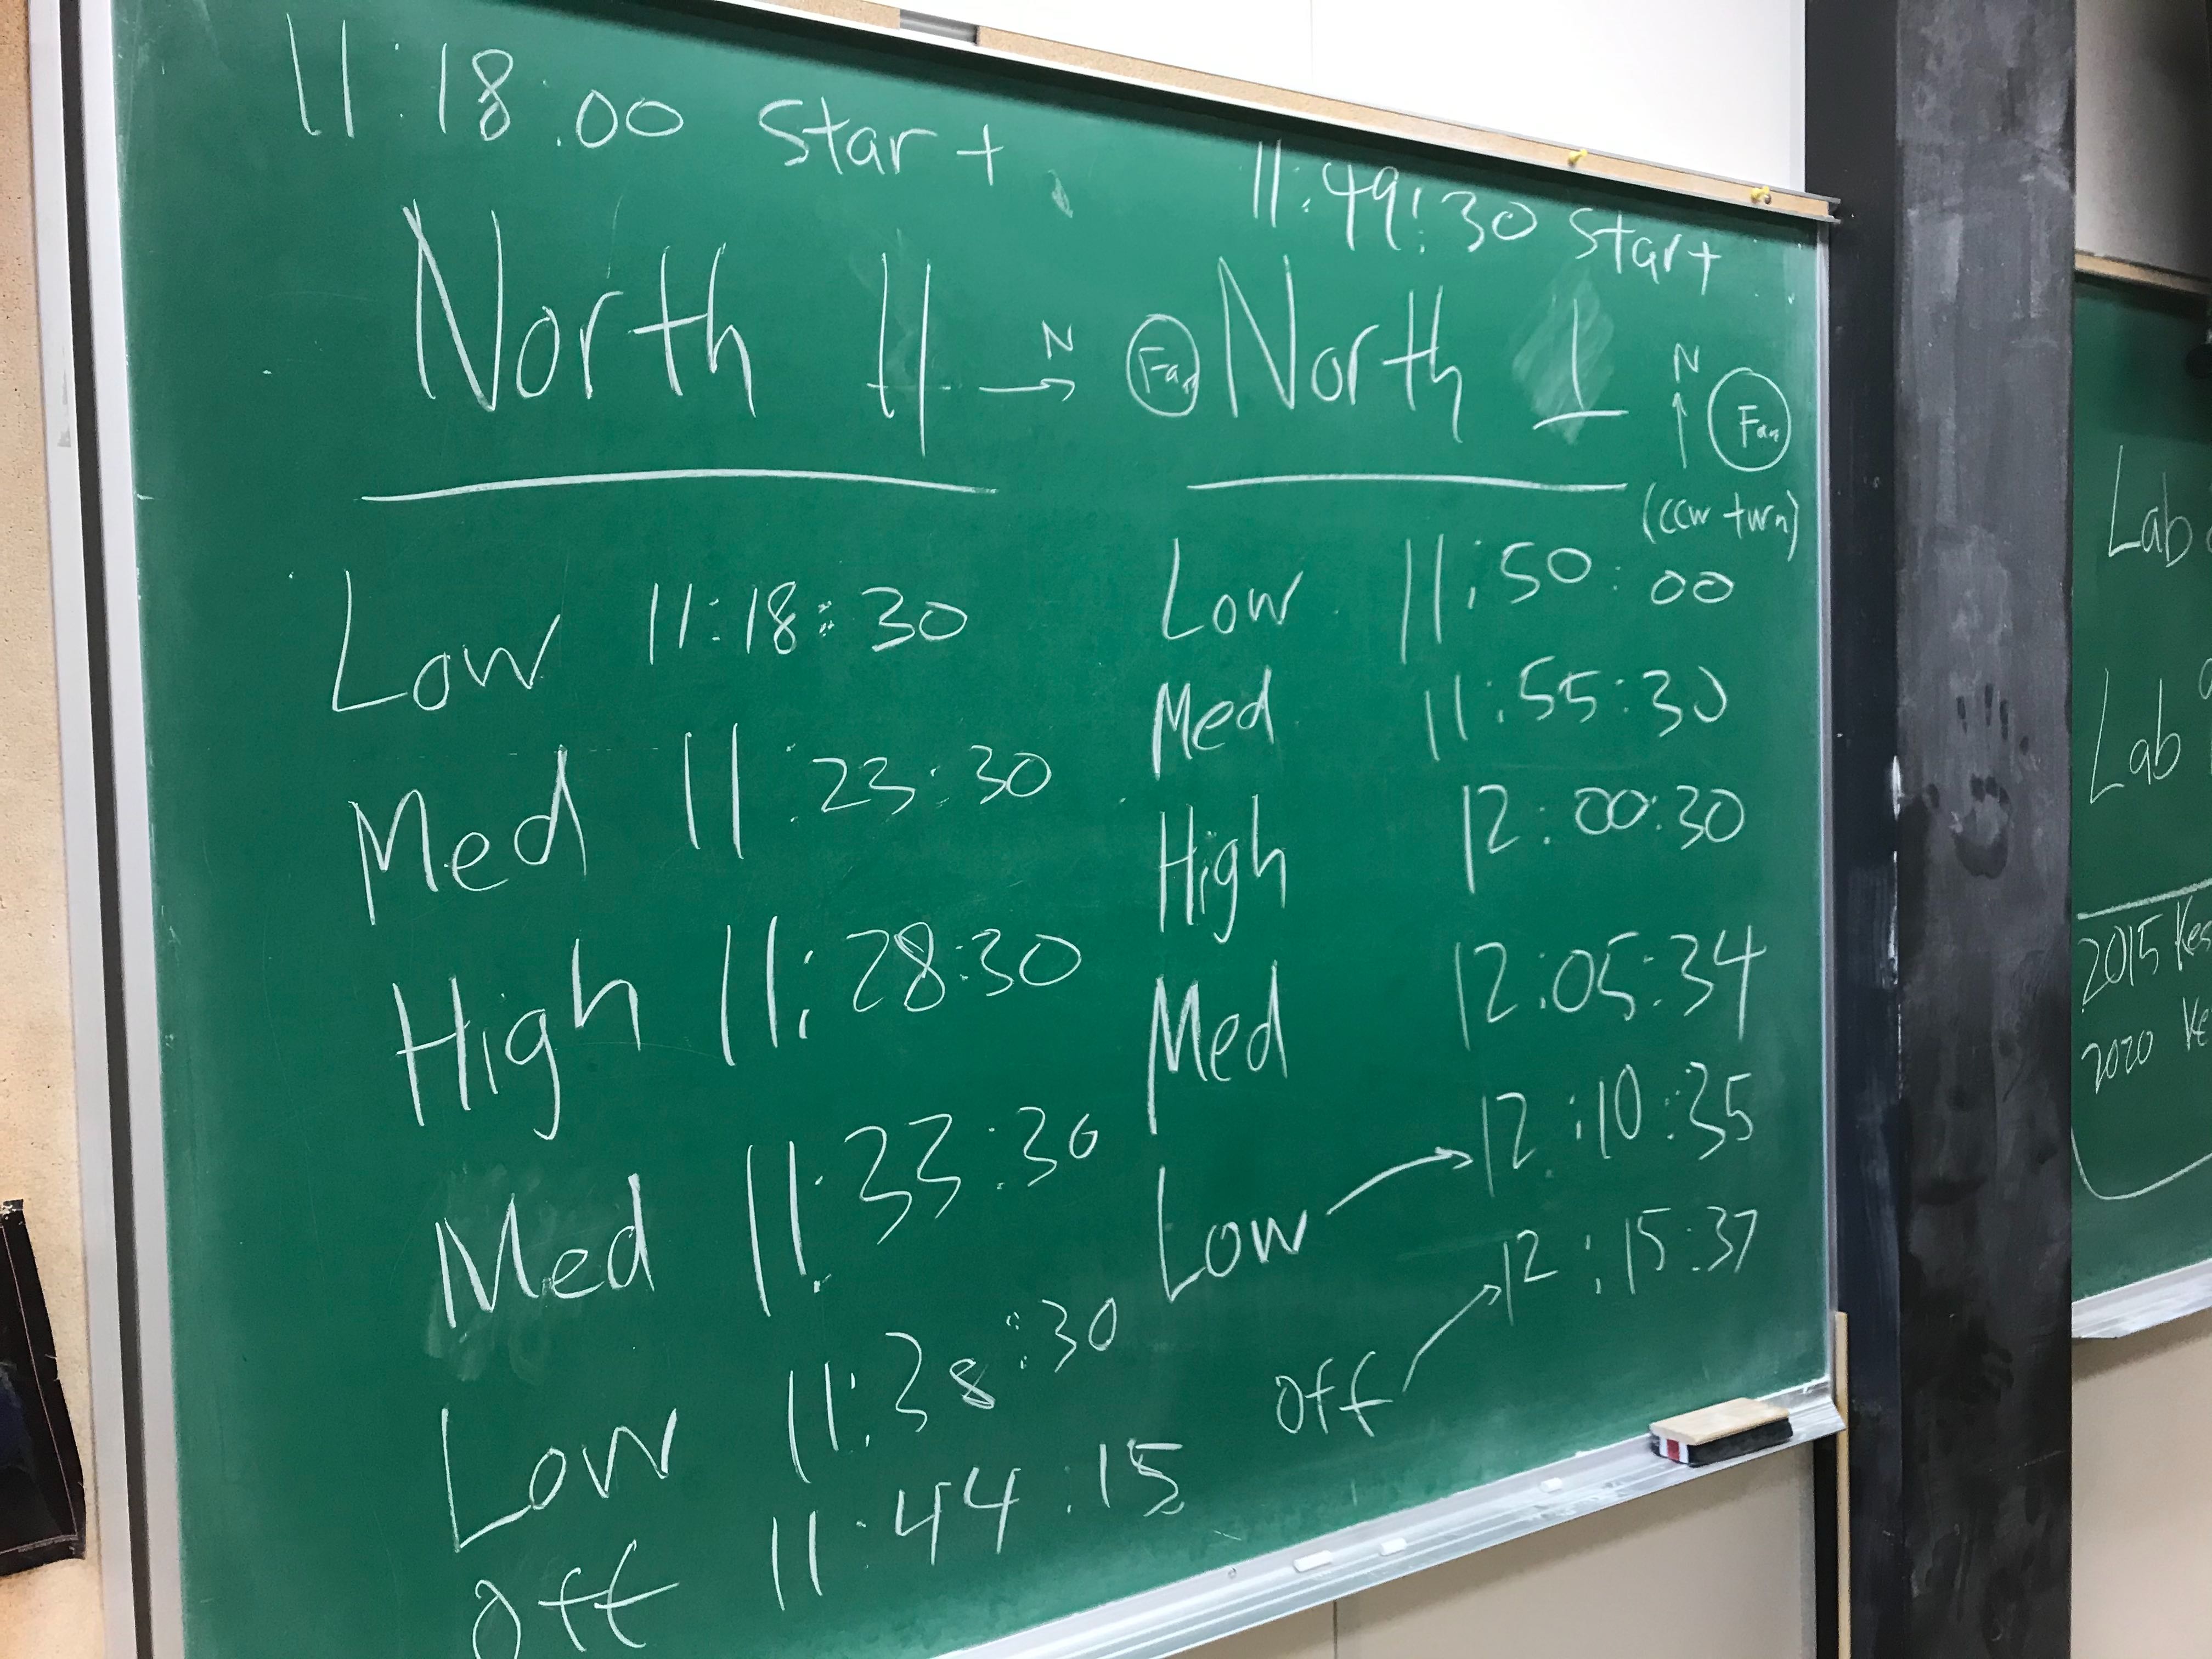 11:18:00 Start
North ||
N
→
Fan
Low 11:18:30
Med 11:23:30
High 11:28:30
Med 11:33:30
Low 11:38:30
Off 11:44:15
11:49:30 Start
North ⊥
N
↑
Fan
(CCW turn)
Low 11:50:00
Med 11:55:30
High 12:00:30
Med 12:05:34
Low → 12:10:35
Off → 12:15:37
Lab
Lab
2015
2020